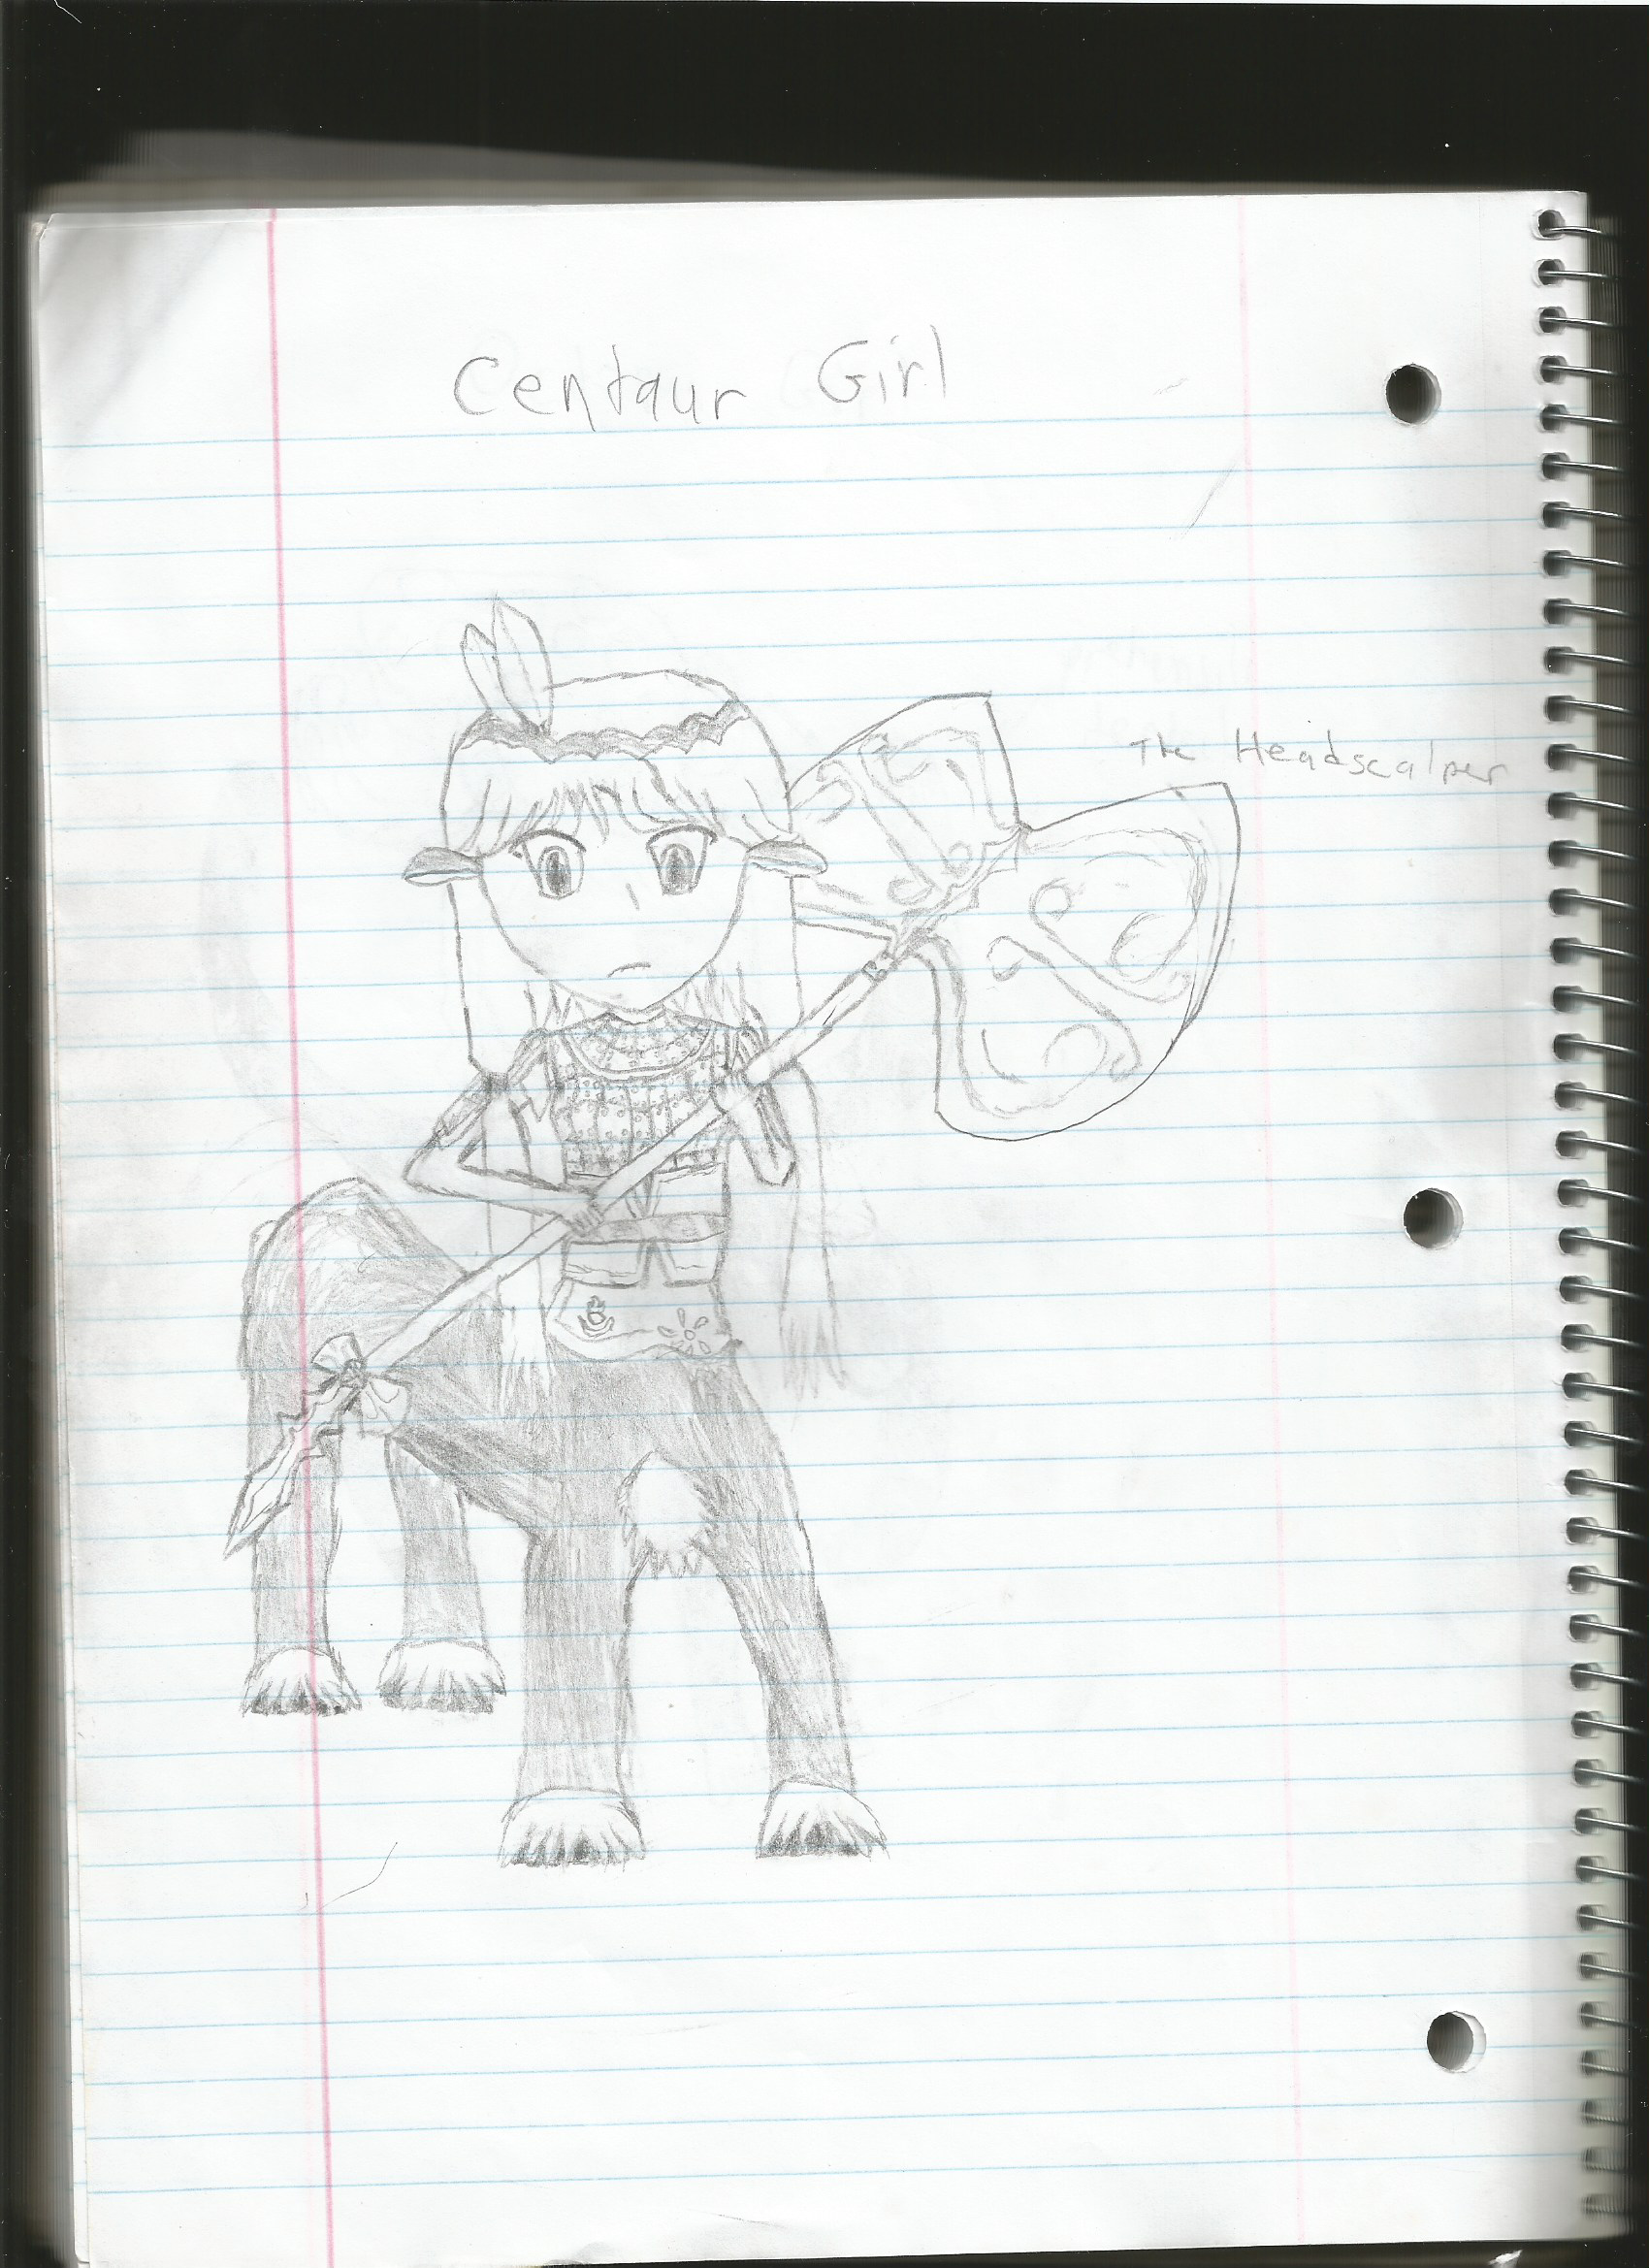 Centaur Girl
The Headscalper